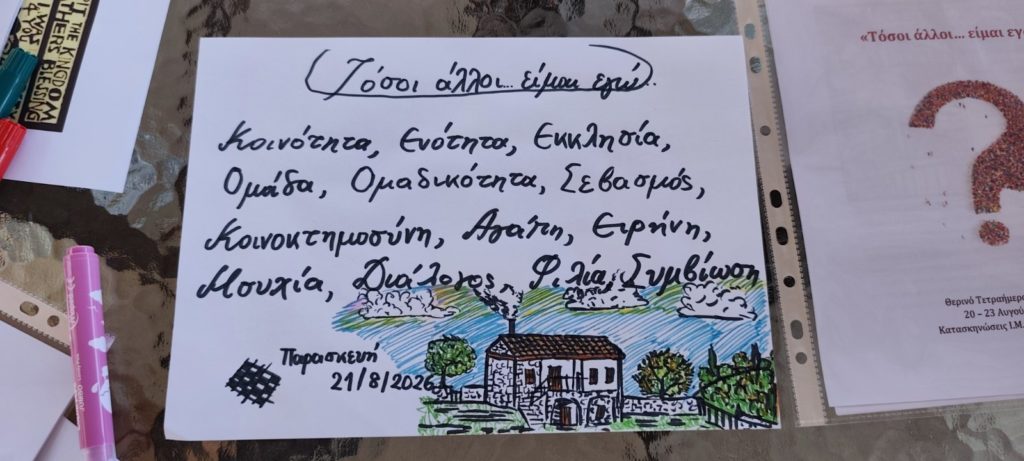 IT THE KINGDOM
4 WAYS
THERS BLESSING
Τόσοι άλλοι... είμαι εγώ.
Κοινότητα, Ενότητα, Εκκλησία,
Ομάδα, Ομαδικότητα, Σεβασμός,
Κοινοκτημοσύνη, Αγάπη, Ειρήνη,
Μουχία, Διάλογος, Φιλία, Συμβίωση
Παρασκευή
21/8/2026
«Τόσοι άλλοι... είμαι εγ
Θερινό Τετραήμερ
20 – 23 Αυγού
Κατασκηνώσεις Ι.Μ.